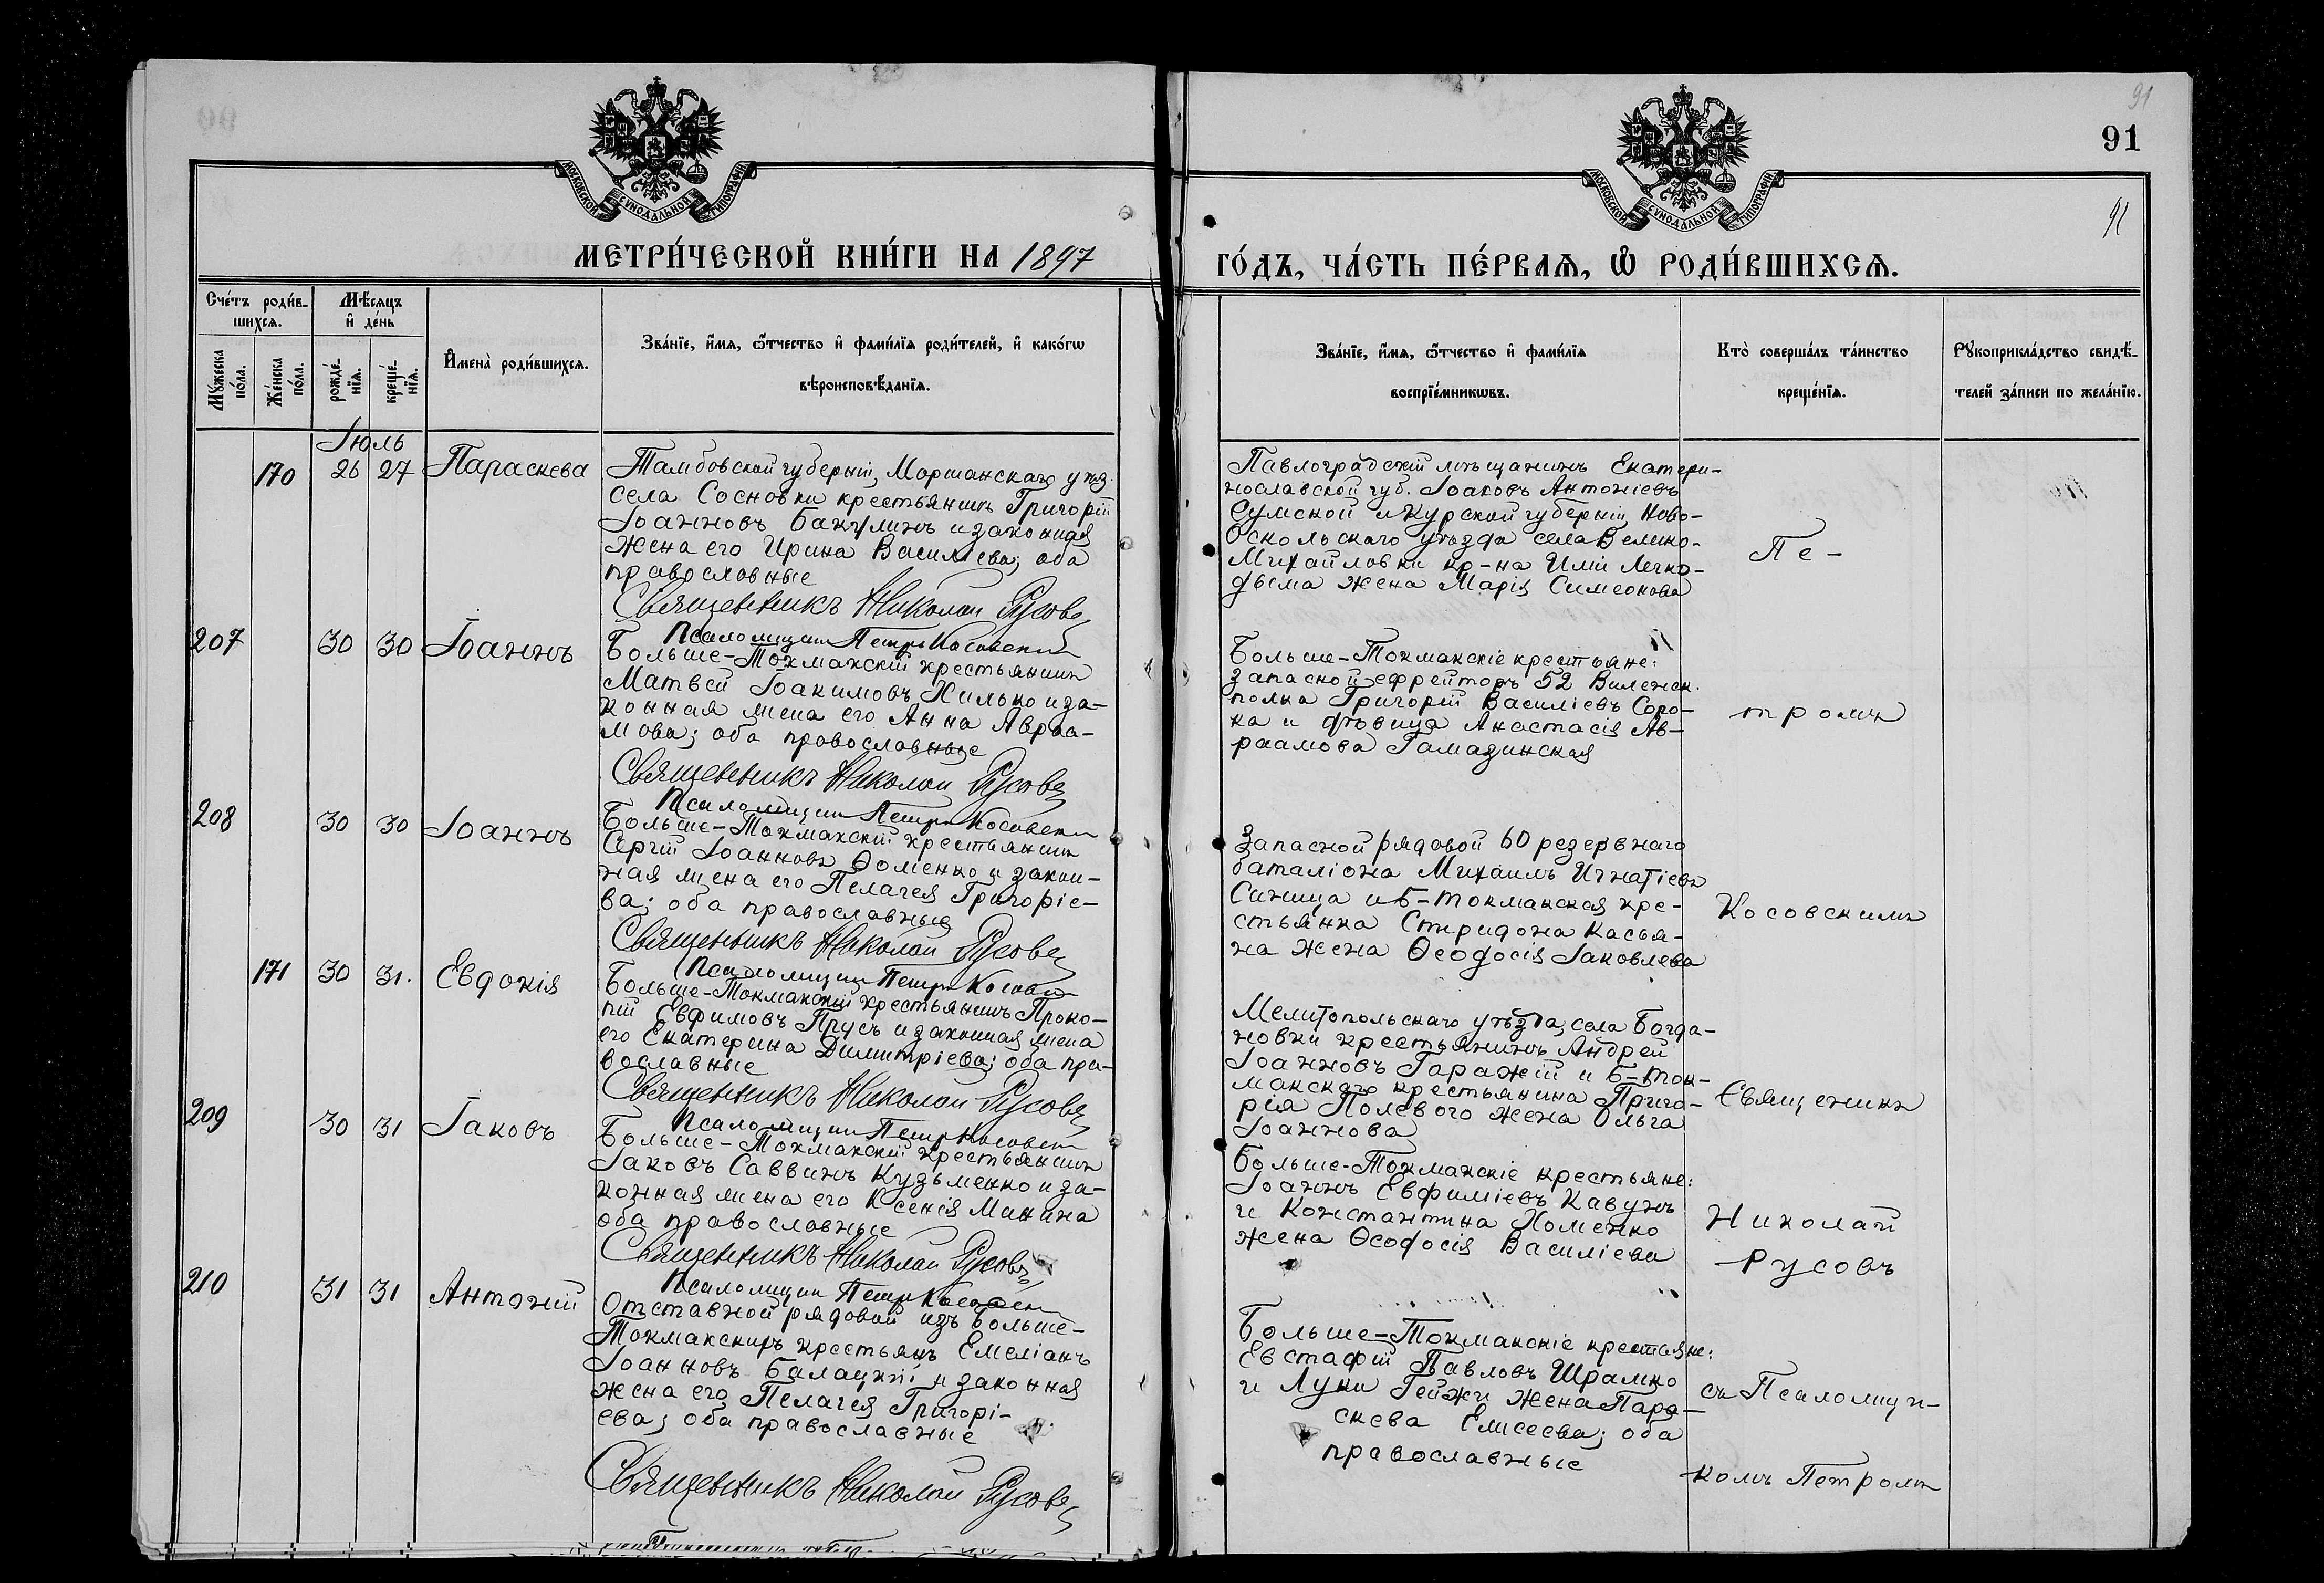 91
91
91
МОСКОВСКОЙ СѴНОДАЛЬНОЙ ТИПОГРАФІИ
МОСКОВСКОЙ СѴНОДАЛЬНОЙ ТИПОГРАФІИ
МЕТРИ́ЧЕСКОЙ КНИ́ГИ НА 1897
ГО́ДЪ, ЧА́СТЬ ПЕ́РВАѦ, Ѽ РОДИ́ВШИХСѦ.
Сче́тъ роди́в-
шихсѧ.
Мꙋ́жеска по́ла.
Же́нска по́ла.
Мѣ́сѧцъ
и҆ де́нь
рожде́-
нїѧ.
креще́-
нїѧ.
И҆мена̀ роди́вшихсѧ.
Зва́нїе, и҆́мѧ, ѻ҆́тчество и҆ фами́лїѧ роди́телей, и҆ како́гѡ
вѣроисповѣ́данїѧ.
Зва́нїе, и҆́мѧ, ѻ҆́тчество и҆ фами́лїѧ
воспрїе́мникѡвъ.
Кто̀ соверша́лъ та́инство
креще́нїѧ.
Рꙋкоприкла́дство свидѣ́-
телей за́писи по жела́нїю.
Іюль
170 26 27 Параскева
Тамбовской губерніи, Моршанскаго уѣз.
села Сосновки крестьянинъ Григорій
Іоанновъ Бакулинъ и законная
жена его Ирина Василіева; оба
православные
Священникъ Николай Русовъ
Псаломщикъ Петръ Косовскій
Павлоградскій мѣщанинъ Екатери-
нославской губ. Іаковъ Антоніевъ
Сумской и Курской губерніи, Ново-
Оскольскаго уѣзда села Велико-
Михайловки кр-на Иліи Легко-
дыма жена Марія Симеонова
Пе-
207 30 30 Іоаннъ
Больше-Токмакскій крестьянинъ
Матвей Іоакимовъ Хилько и за-
конная жена его Анна Авраа-
мова; оба православные
Священникъ Николай Русовъ
Псаломщикъ Петръ Косовскій
Больше-Токмакскіе крестьяне:
Запасной ефрейторъ 52 Виленск.
полка Григорій Василіевъ Соро-
ка и дѣвица Анастасія Ав-
раамова Гамазинская
тромъ
208 30 30 Іоаннъ
Больше-Токмакскій крестьянинъ
Сергій Іоанновъ Ѳоменко и закон-
ная жена его Пелагея Григоріе-
ва; оба православные
Священникъ Николай Русовъ
Псаломщикъ Петръ Косовскій
Запасной рядовой 60 резервнаго
баталіона Михаилъ Игнатіевъ
Синица и Б-Токмакская кре-
стьянка Спиридона Касья-
на жена Ѳеодосія Іаковлева
Косовскимъ
171 30 31. Евдокія
Больше-Токмакскій крестьянинъ Проко-
пій Евфимовъ Прусъ и законная жена
его Екатерина Димитріева; оба пра-
вославные
Священникъ Николай Русовъ
Псаломщикъ Петръ Косовскій
Мелитопольскаго уѣзда, села Богда-
новки крестьянинъ Андрей
Іоанновъ Гаражій и Б-Ток-
макскаго крестьянина Григо-
рія Полевого жена Ольга
Іоаннова
Священникъ
209 30 31 Іаковъ
Больше-Токмакскій крестьянинъ
Іаковъ Саввинъ Кузьменко и за-
конная жена его Ксенія Минина
оба православные
Священникъ Николай Русовъ
Псаломщикъ Петръ Косовскій
Больше-Токмакскіе крестьяне:
Іоаннъ Евфиміевъ Кавунъ
и Константина Хоменко
жена Ѳеодосія Василіева
Николай
Русовъ
210 31 31 Антоній
Отставной рядовой изъ Больше-
Токмакскихъ крестьянъ Емеліанъ
Іоанновъ Балацкій и законная
жена его Пелагея Григорі-
ева; оба православные
Священникъ Николай Русовъ
Больше-Токмакскіе крестьяне:
Евстафій Павловъ Шрамко
и Луки Гейжи жена Пара-
скева Елисеева; оба
православные
съ Псаломщи-
комъ Петромъ